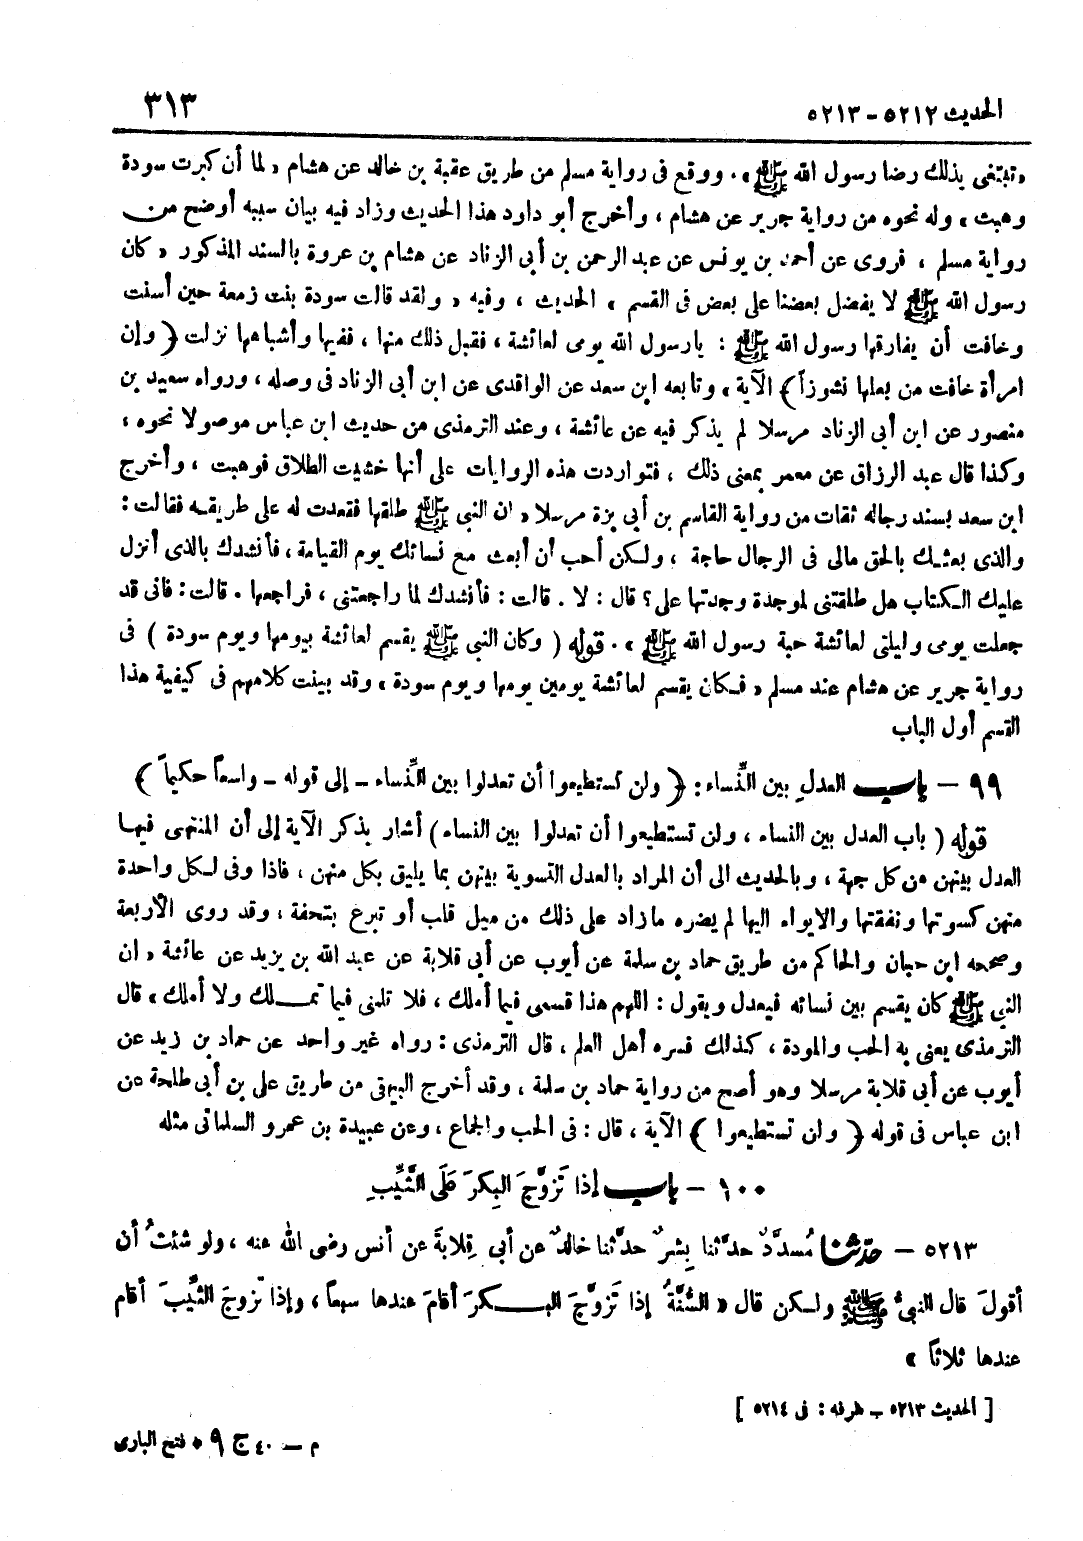 الحديث ٥٢١٢ - ٥٢١٣
٣١٣
« تبتغى بذلك رضا رسول الله ﷺ » . ووقع فى رواية مسلم من طريق عقبة بن خالد عن هشام « لما أن كبرت سودة
وهبت » وله نحوه من رواية جرير عن هشام ، وأخرج أبو داود هذا الحديث وزاد فيه بيان سببه أوضح من
رواية مسلم ، فروى عن أحمد بن يونس عن عبد الرحمن بن أبى الزناد عن هشام بن عروة بالسند المذكور « كان
رسول الله ﷺ لا يفضل بعضنا على بعض فى القسم » الحديث ، وفيه « ولقد قالت سودة بنت زمعة حين أسنت
وخافت أن يفارقها رسول الله ﷺ : يارسول الله يومى لعائشة ، فقبل ذلك منها ، ففيها وأشباهها نزلت ﴿ وإن
امرأة خافت من بعلها نشوزاً ﴾ الآية » وتابعه ابن سعد عن الواقدى عن ابن أبى الزناد فى وصله ، ورواه سعيد بن
منصور عن ابن أبى الزناد مرسلا لم يذكر فيه عن عائشة ، وعند الترمذى من حديث ابن عباس موصولا نحوه ،
وكذا قال عبد الرزاق عن معمر بمعنى ذلك ، فتواردت هذه الروايات على أنها خشيت الطلاق فوهبت ، وأخرج
ابن سعد بسند رجاله ثقات من رواية القاسم بن أبى بزة مرسلا « ان النبى ﷺ طلقها فقعدت له على طريقه فقالت :
والذى بعثك بالحق مالى فى الرجال حاجة ، ولكن أحب أن أبعث مع نسائك يوم القيامة ، فأنشدك بالذى أنزل
عليك الكتاب هل طلقتنى لموجدة وجدتها على ؟ قال : لا . قالت : فأنشدك لما راجعتنى ، فراجعها . قالت : فانى قد
جعلت يومى وليلتى لعائشة حبة رسول الله ﷺ » . قوله ( وكان النبى ﷺ يقسم لعائشة بيومها ويوم سودة ) فى
رواية جرير عن هشام عند مسلم « فكان يقسم لعائشة يومين يومها ويوم سودة » وقد بينت كلامهم فى كيفية هذا
القسم أول الباب
٩٩ - باب العدلِ بين النِّساء : ﴿ ولن تستطيعوا أن تعدلوا بين النِّساء - إلى قوله - واسعاً حكيماً ﴾
قوله ( باب العدل بين النساء ، ولن تستطيعوا أن تعدلوا بين النساء ) أشار بذكر الآية إلى أن المنتهى فيها
العدل بينهن من كل جهة ، وبالحديث الى أن المراد بالعدل التسوية بينهن بما يليق بكل منهن ، فاذا وفى لكل واحدة
منهن كسوتها ونفقتها والايواء اليها لم يضره مازاد على ذلك من ميل قلب أو تبرع بتحفة ، وقد روى الأربعة
وصححه ابن حبان والحاكم من طريق حماد بن سلمة عن أيوب عن أبى قلابة عن عبد الله بن يزيد عن عائشة « ان
النبى ﷺ كان يقسم بين نسائه فيعدل ويقول : اللهم هذا قسمى فيما أملك ، فلا تلمنى فيما تملك ولا أملك » قال
الترمذى يعنى به الحب والمودة ، كذلك فسره أهل العلم ، قال الترمذى : رواه غير واحد عن حماد بن زيد عن
أيوب عن أبى قلابة مرسلا وهو أصح من رواية حماد بن سلمة ، وقد أخرج البيهقى من طريق على بن أبى طلحة عن
ابن عباس فى قوله ﴿ ولن تستطيعوا ﴾ الآية ، قال : فى الحب والجماع ، وعن عبيدة بن عمرو السلمانى مثله
١٠٠ - باب إذا تَزوَّجَ البِكرَ عَلَى الثَّيِّبِ
٥٢١٣ - حدّثنا مُسدَّدٌ حدَّثنا بِشرٌ حدَّثنا خالدٌ عن أبي قِلابةَ عن أنس رضى الله عنه ، ولو شئتُ أن
أقولَ قال النبىُّ ﷺ ولكن قال « السُّنَّةُ إذا تَزوَّجَ البكرَ أقامَ عندها سبعاً ، وإذا تزوجَ الثَّيبَ أقام
عندها ثلاثاً »
[ الحديث ٥٢١٣ - طرفه : فى ٥٢١٤ ]
م - ٤٠ ج ٩ * فتح البارى